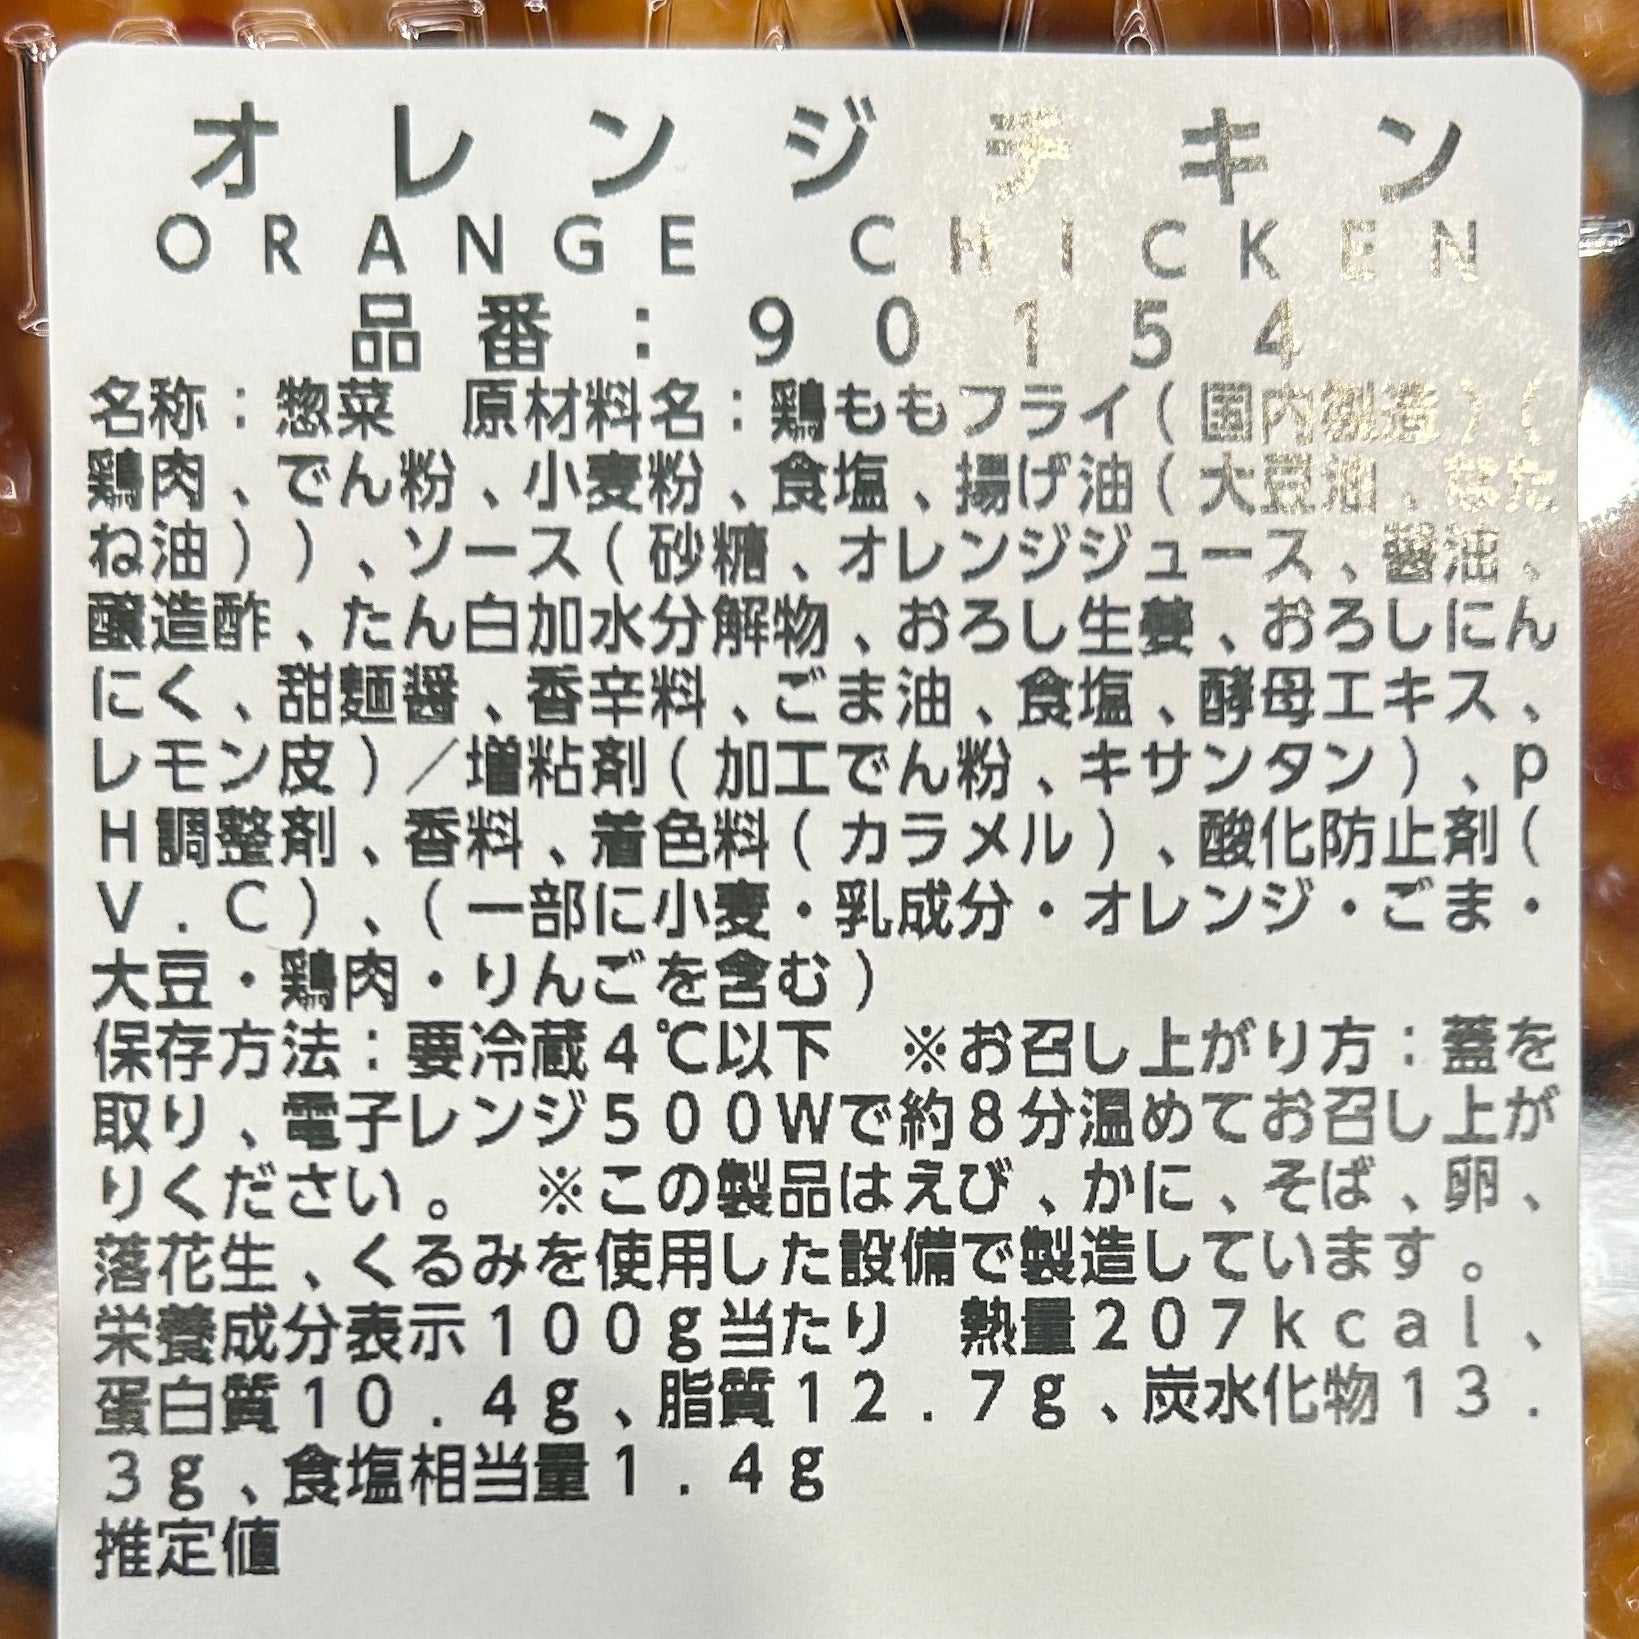 オレンジチキン
ORANGE CHICKEN
品番：90154
名称：惣菜　原材料名：鶏ももフライ（国内製造）（
鶏肉、でん粉、小麦粉、食塩、揚げ油（大豆油、なた
ね油））、ソース（砂糖、オレンジジュース、醤油、
醸造酢、たん白加水分解物、おろし生姜、おろしにん
にく、甜麺醤、香辛料、ごま油、食塩、酵母エキス、
レモン皮）／増粘剤（加工でん粉、キサンタン）、p
H調整剤、香料、着色料（カラメル）、酸化防止剤（
V.C）、（一部に小麦・乳成分・オレンジ・ごま・
大豆・鶏肉・りんごを含む）
保存方法：要冷蔵4℃以下　※お召し上がり方：蓋を
取り、電子レンジ500Wで約8分温めてお召し上が
りください。　※この製品はえび、かに、そば、卵、
落花生、くるみを使用した設備で製造しています。
栄養成分表示100g当たり　熱量207kcal、
蛋白質10.4g、脂質12.7g、炭水化物13.
3g、食塩相当量1.4g
推定値